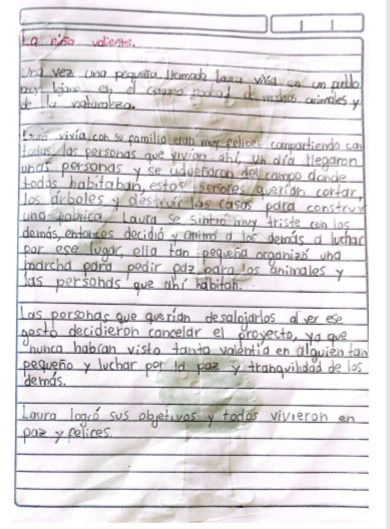 La niña valiente.
Una vez una pequeña llamada laura vivía en un pueblo
muy lejano en el campo rodeado de muchos animales y
de la naturaleza.
Laura vivía con su familia eran muy felices compartiendo con
todas las personas que vivían ahí, un día llegaron
unas personas y se adueñaron del campo donde
todos habitaban, estos señores querían cortar,
los árboles y destruir las casas para construir
una fabrica, Laura se sintió muy triste con los
demás, entonces decidió y animó a los demás a luchar
por ese lugar, ella tan pequeña organizó una
marcha para pedir paz para los animales y
las personas que ahí habitan.
Las personas que querían desalojarlos al ver ese
gesto decidieron cancelar el proyecto, ya que
nunca habían visto tanta valentía en alguien tan
pequeño y luchar por la paz y tranquilidad de los
demás.
Laura logró sus objetivos y todos vivieron en
paz y felices.